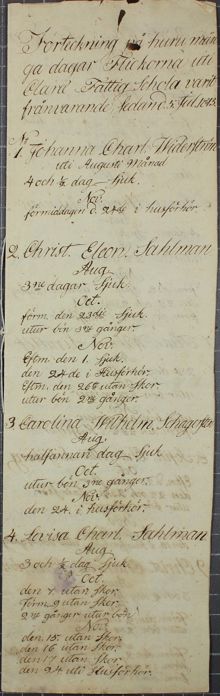 Förteckning på huru mån-
ga dagar Flickorna uti
Clara Fattig Schola varit
frånvarande sedan d. 5 Juli
N:
1. Johanna Charl. Widerström
uti Augusti Månad
4 och ½ dag Sjuk.
Nov.
förmiddagen d. 24de i husförhör.
2. Christ. Eleon. Sahlman
Aug.
3ne dagar Sjuk.
Oct.
förm. den 23de Sjuk.
utur bön 3ne gånger.
Nov.
Eftm. den 1. sjuk.
den 24de i Husförhör.
Eftm. den 26te utan Skor.
utur bön 2ne gånger.
3. Carolina Wilhelm.
Aug.
halfannan dag Sjuk
Oct.
utur bön 3ne gånger.
Nov.
den 24. i husförhör.
4. Lovisa Charl. Sahlman
Aug.
3 och ½ dag Sjuk
Oct.
den 7 utan Skor.
Förm. 9 utan Skor.
2ne gånger utur bön
Nov.
den 15. utan Skor.
den 16 utan Skor.
den 17 utan Skor.
den 24 uti Husförhör.